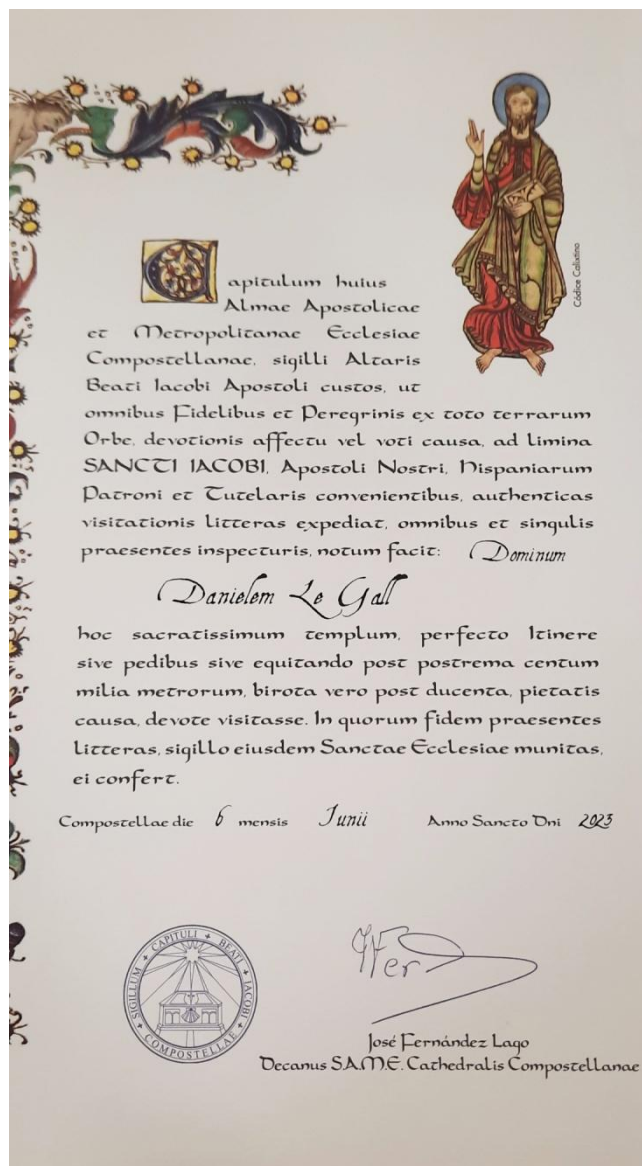 Códice Calixtino
Capitulum huius
Almae Apostolicae
et Metropolitanae Ecclesiae
Compostellanae, sigilli Altaris
Beati Iacobi Apostoli custos, ut
omnibus Fidelibus et Peregrinis ex toto terrarum
Orbe, devotionis affectu vel voti causa, ad limina
SANCTI IACOBI, Apostoli Nostri, Hispaniarum
Patroni et Tutelaris convenientibus, authenticas
visitationis litteras expediat, omnibus et singulis
praesentes inspecturis, notum facit: Dominum
Danielem Le Gall
hoc sacratissimum templum, perfecto Itinere
sive pedibus sive equitando post postrema centum
milia metrorum, birota vero post ducenta, pietatis
causa, devote visitasse. In quorum fidem praesentes
litteras, sigillo eiusdem Sanctae Ecclesiae munitas,
ei confert.
Compostellae die 6 mensis Junii Anno Sancto Dni 2023
SIGILLUM + CAPITULI + BEATI + IACOBI + COMPOSTELLAE +
José Fernández Lago
Decanus S.A.M.E. Cathedralis Compostellanae